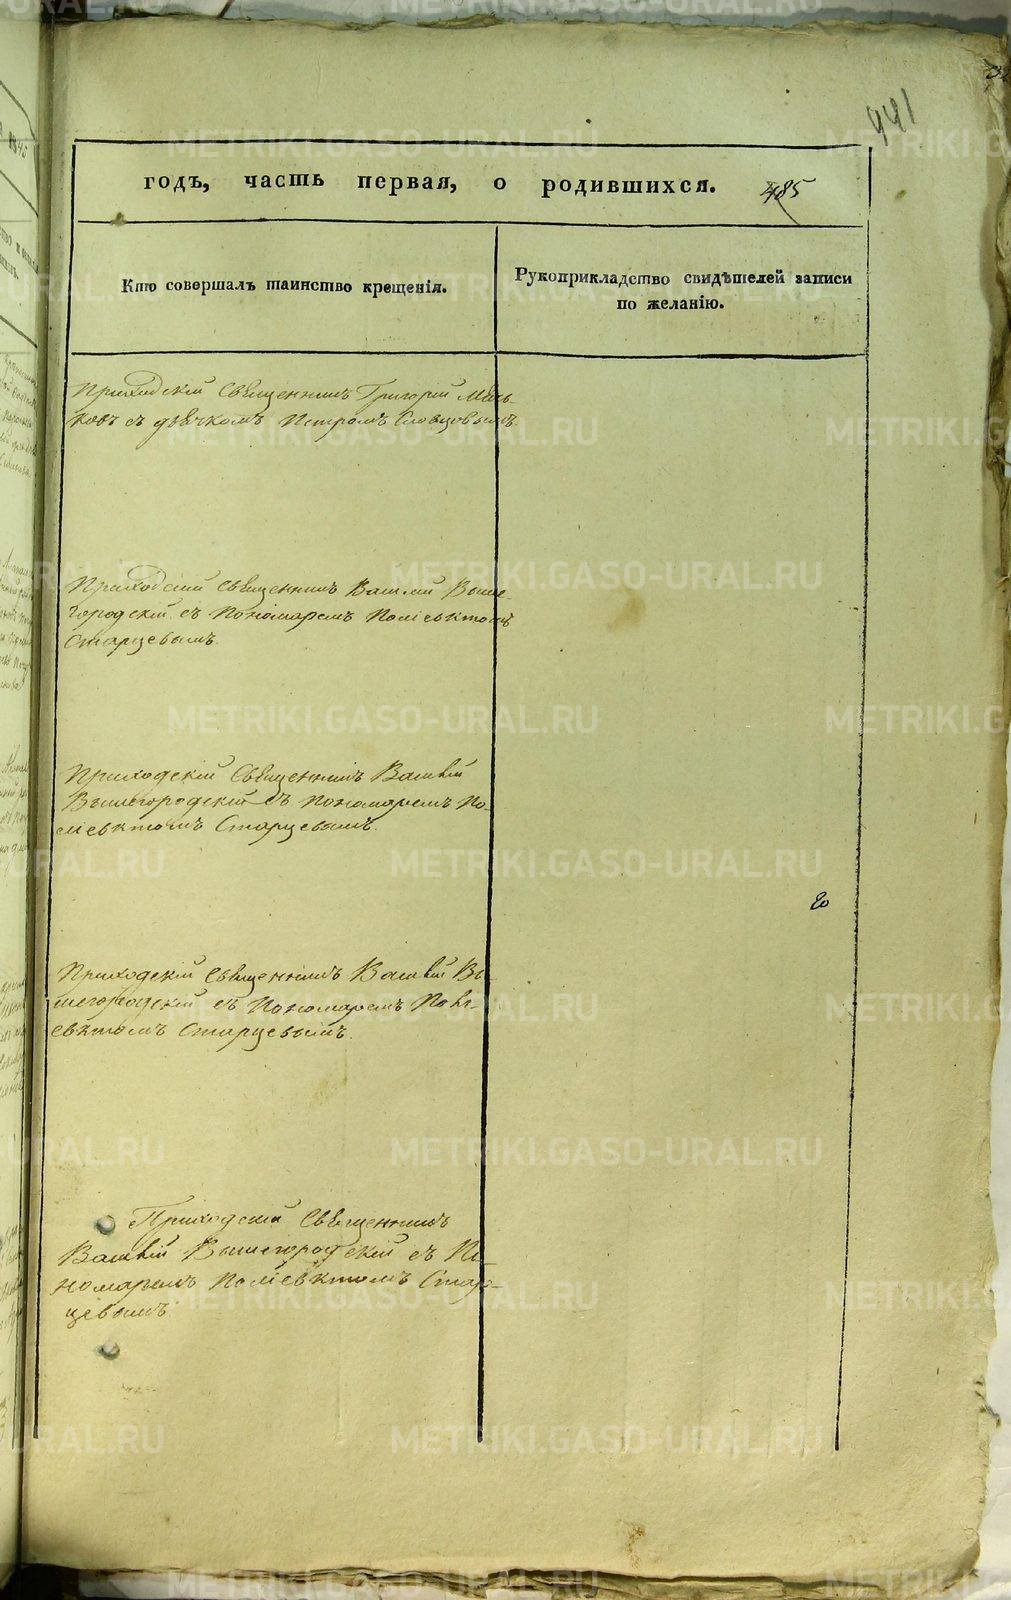 441
годъ, часть первая, о родившихся. 485
Кто совершалъ таинство крещенія.
Рукоприкладство свидѣтелей записи
по желанію.
Приходскій Священникъ Григорій Мань-
ковъ съ дьячкомъ Петромъ Словцовымъ.
Приходскій Священникъ Василій Выше-
городскій съ Пономаремъ Поліевктомъ
Старцевымъ.
Приходскій Священникъ Василій
Вышегородскій съ Пономаремъ По-
ліевктомъ Старцевымъ.
Приходскій Священникъ Василій Вы-
шегородскій съ Пономаремъ Полі-
евктомъ Старцевымъ.
Приходскій Священникъ
Василій Вышегородскій съ По-
номаремъ Поліевктомъ Стар-
цевымъ.
METRIKI.GASO-URAL.RU